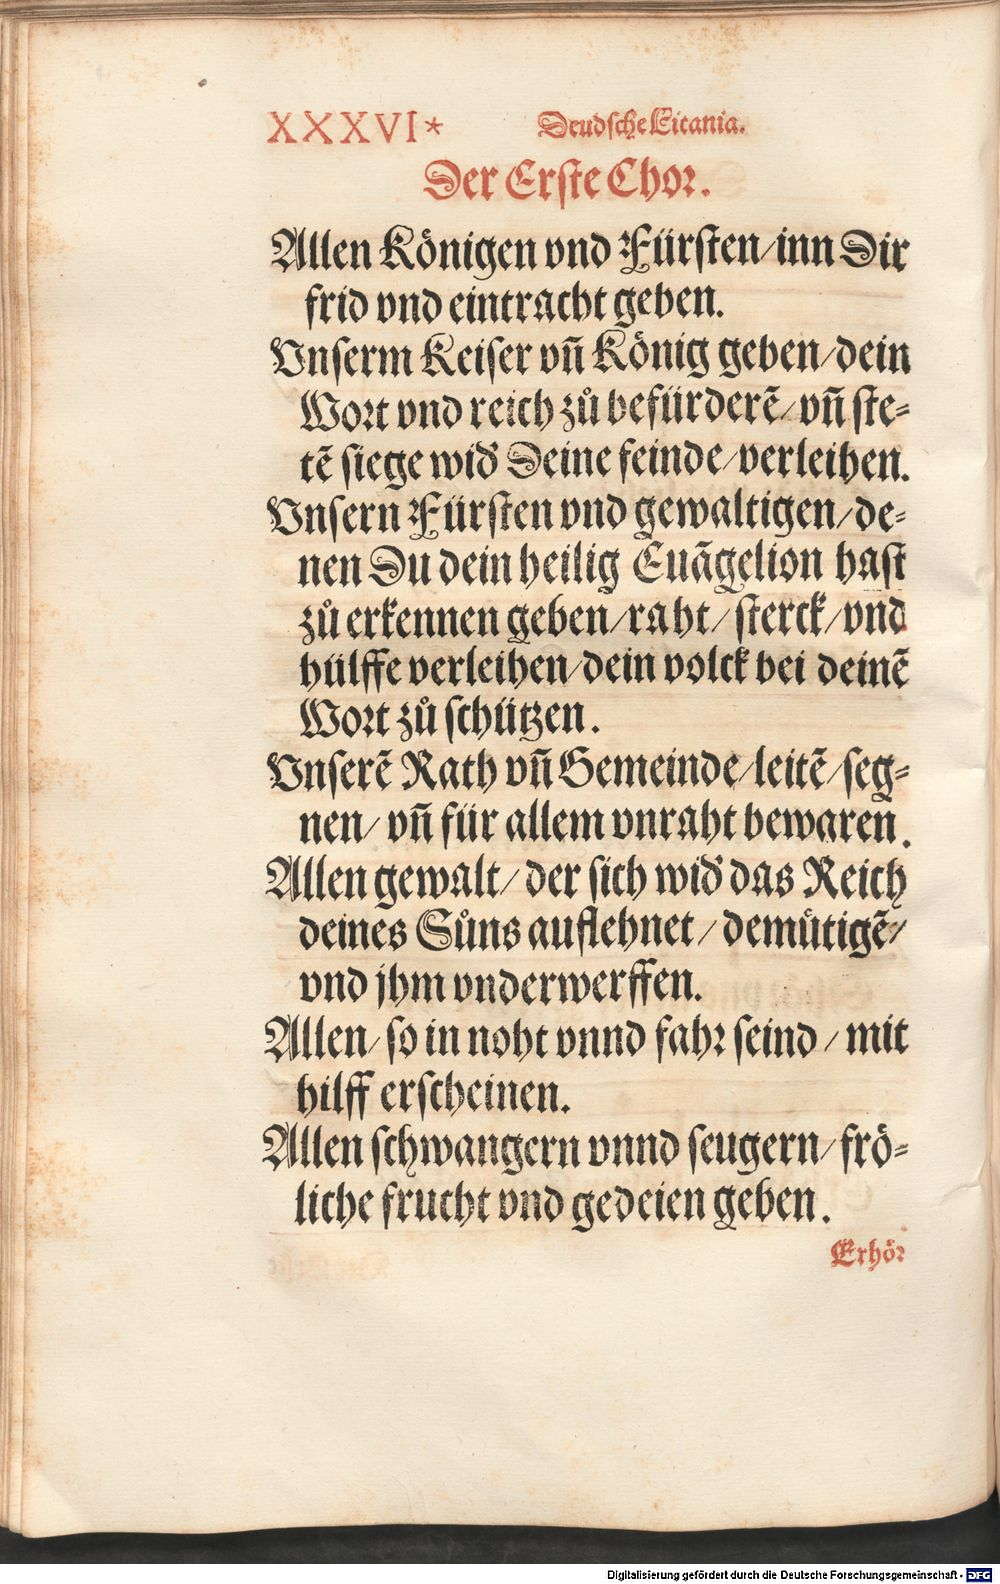 XXXVI* Deudsche Litania.
Der Erste Chor.
Allen Königen vnd Fürsten/inn Dir
frid vnd eintracht geben.
Vnserm Keiser vñ König geben/dein
Wort vnd reich zů befürderē/vñ ste-
tē siege wid' Deine feinde/verleihen.
Vnsern Fürsten vnd gewaltigen/de-
nen Du dein heilig Euāgelion hast
zů erkennen geben/raht/sterck/vnd
hülffe verleihen/dein volck bei deinē
Wort zů schützen.
Vnserē Rath vñ Gemeinde/leitē/seg-
nen/vñ für allem vnraht bewaren.
Allen gewalt/der sich wid' das Reich
deines Sůns auflehnet/demůtigē/
vnd jhm vnderwerffen.
Allen/so in noht vnnd fahr seind/mit
hilff erscheinen.
Allen schwangern vnnd seugern/frö-
liche frucht vnd gedeien geben.
Erhör
Digitalisierung gefördert durch die Deutsche Forschungsgemeinschaft - DFG